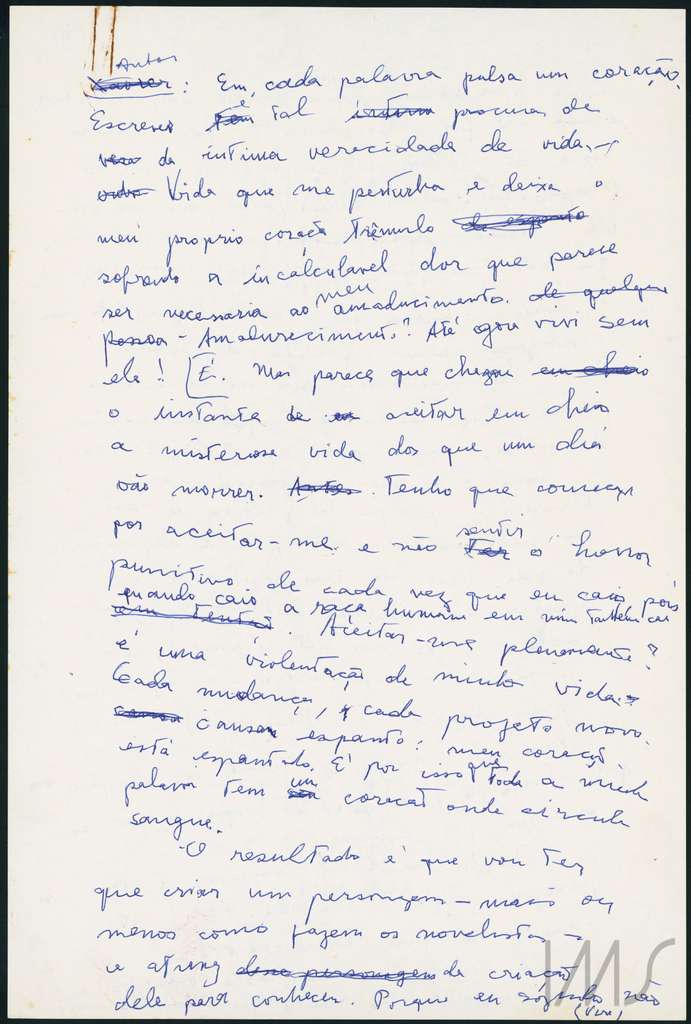 Autor
Xavier: Em cada palavra pulsa um coração.
Escrever é tal procura de
da íntima veracidade de vida.
Vida que me perturba e deixa o
meu proprio coração trêmulo de espanto
sofrendo a incalculavel dor que parece
ser necessaria ao meu amadurecimento. de qualquer
pessoa - Amadurecimento? Até agora vivi sem
ele! [É. Mas parece que chegou em cheio
o instante de aceitar em cheio
a misteriosa vida dos que um dia
vão morrer. Antes. Tenho que começar
por aceitar-me e não ter sentir o horror
punitivo de cada vez que eu caio pois
quando caio a raça humana em mim também cai
. Aceitar-me plenamente?
é uma violentação de minha vida.
Cada mudança, cada projeto novo
causa espanto: meu coração
está espantado. É por isso que toda a minha
palavra tem um coração onde circula
sangue.
O resultado é que vou ter
que criar um personagem - mais ou
menos como fazem os novelistas -
e através desse personagem da criação
dele para conhecer. Porque eu sozinho não
IMS